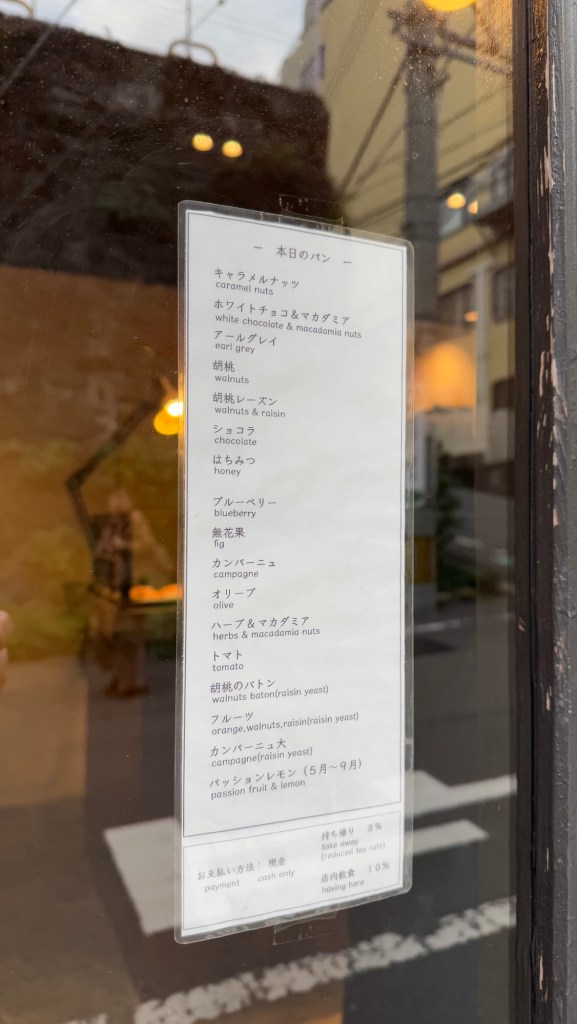 — 本日のパン —
キャラメルナッツ
caramel nuts
ホワイトチョコ&マカダミア
white chocolate & macadamia nuts
アールグレイ
earl grey
胡桃
walnuts
胡桃レーズン
walnuts & raisin
ショコラ
chocolate
はちみつ
honey
ブルーベリー
blueberry
無花果
fig
カンパーニュ
campagne
オリーブ
olive
ハーブ&マカダミア
herbs & macadamia nuts
トマト
tomato
胡桃のバトン
walnuts baton(raisin yeast)
フルーツ
orange,walnuts,raisin(raisin yeast)
カンパーニュ大
campagne(raisin yeast)
パッションレモン（5月〜9月）
passion fruit & lemon
お支払い方法： 現金
payment cash only
持ち帰り 8%
take away
(reduced tax rate)
店内飲食 10%
having here